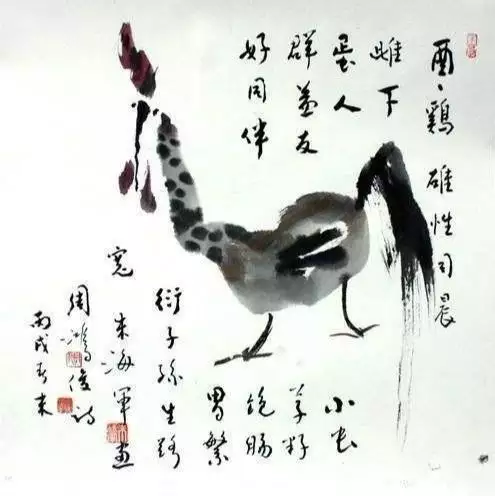 酉、鷄 雄性司晨
雌下
蛋人
群益友
好同伴
小虫
草籽
饱肠
胃繁
衍子孫生路
宽 朱海軍画
周鸿俊诗
丙戌春末